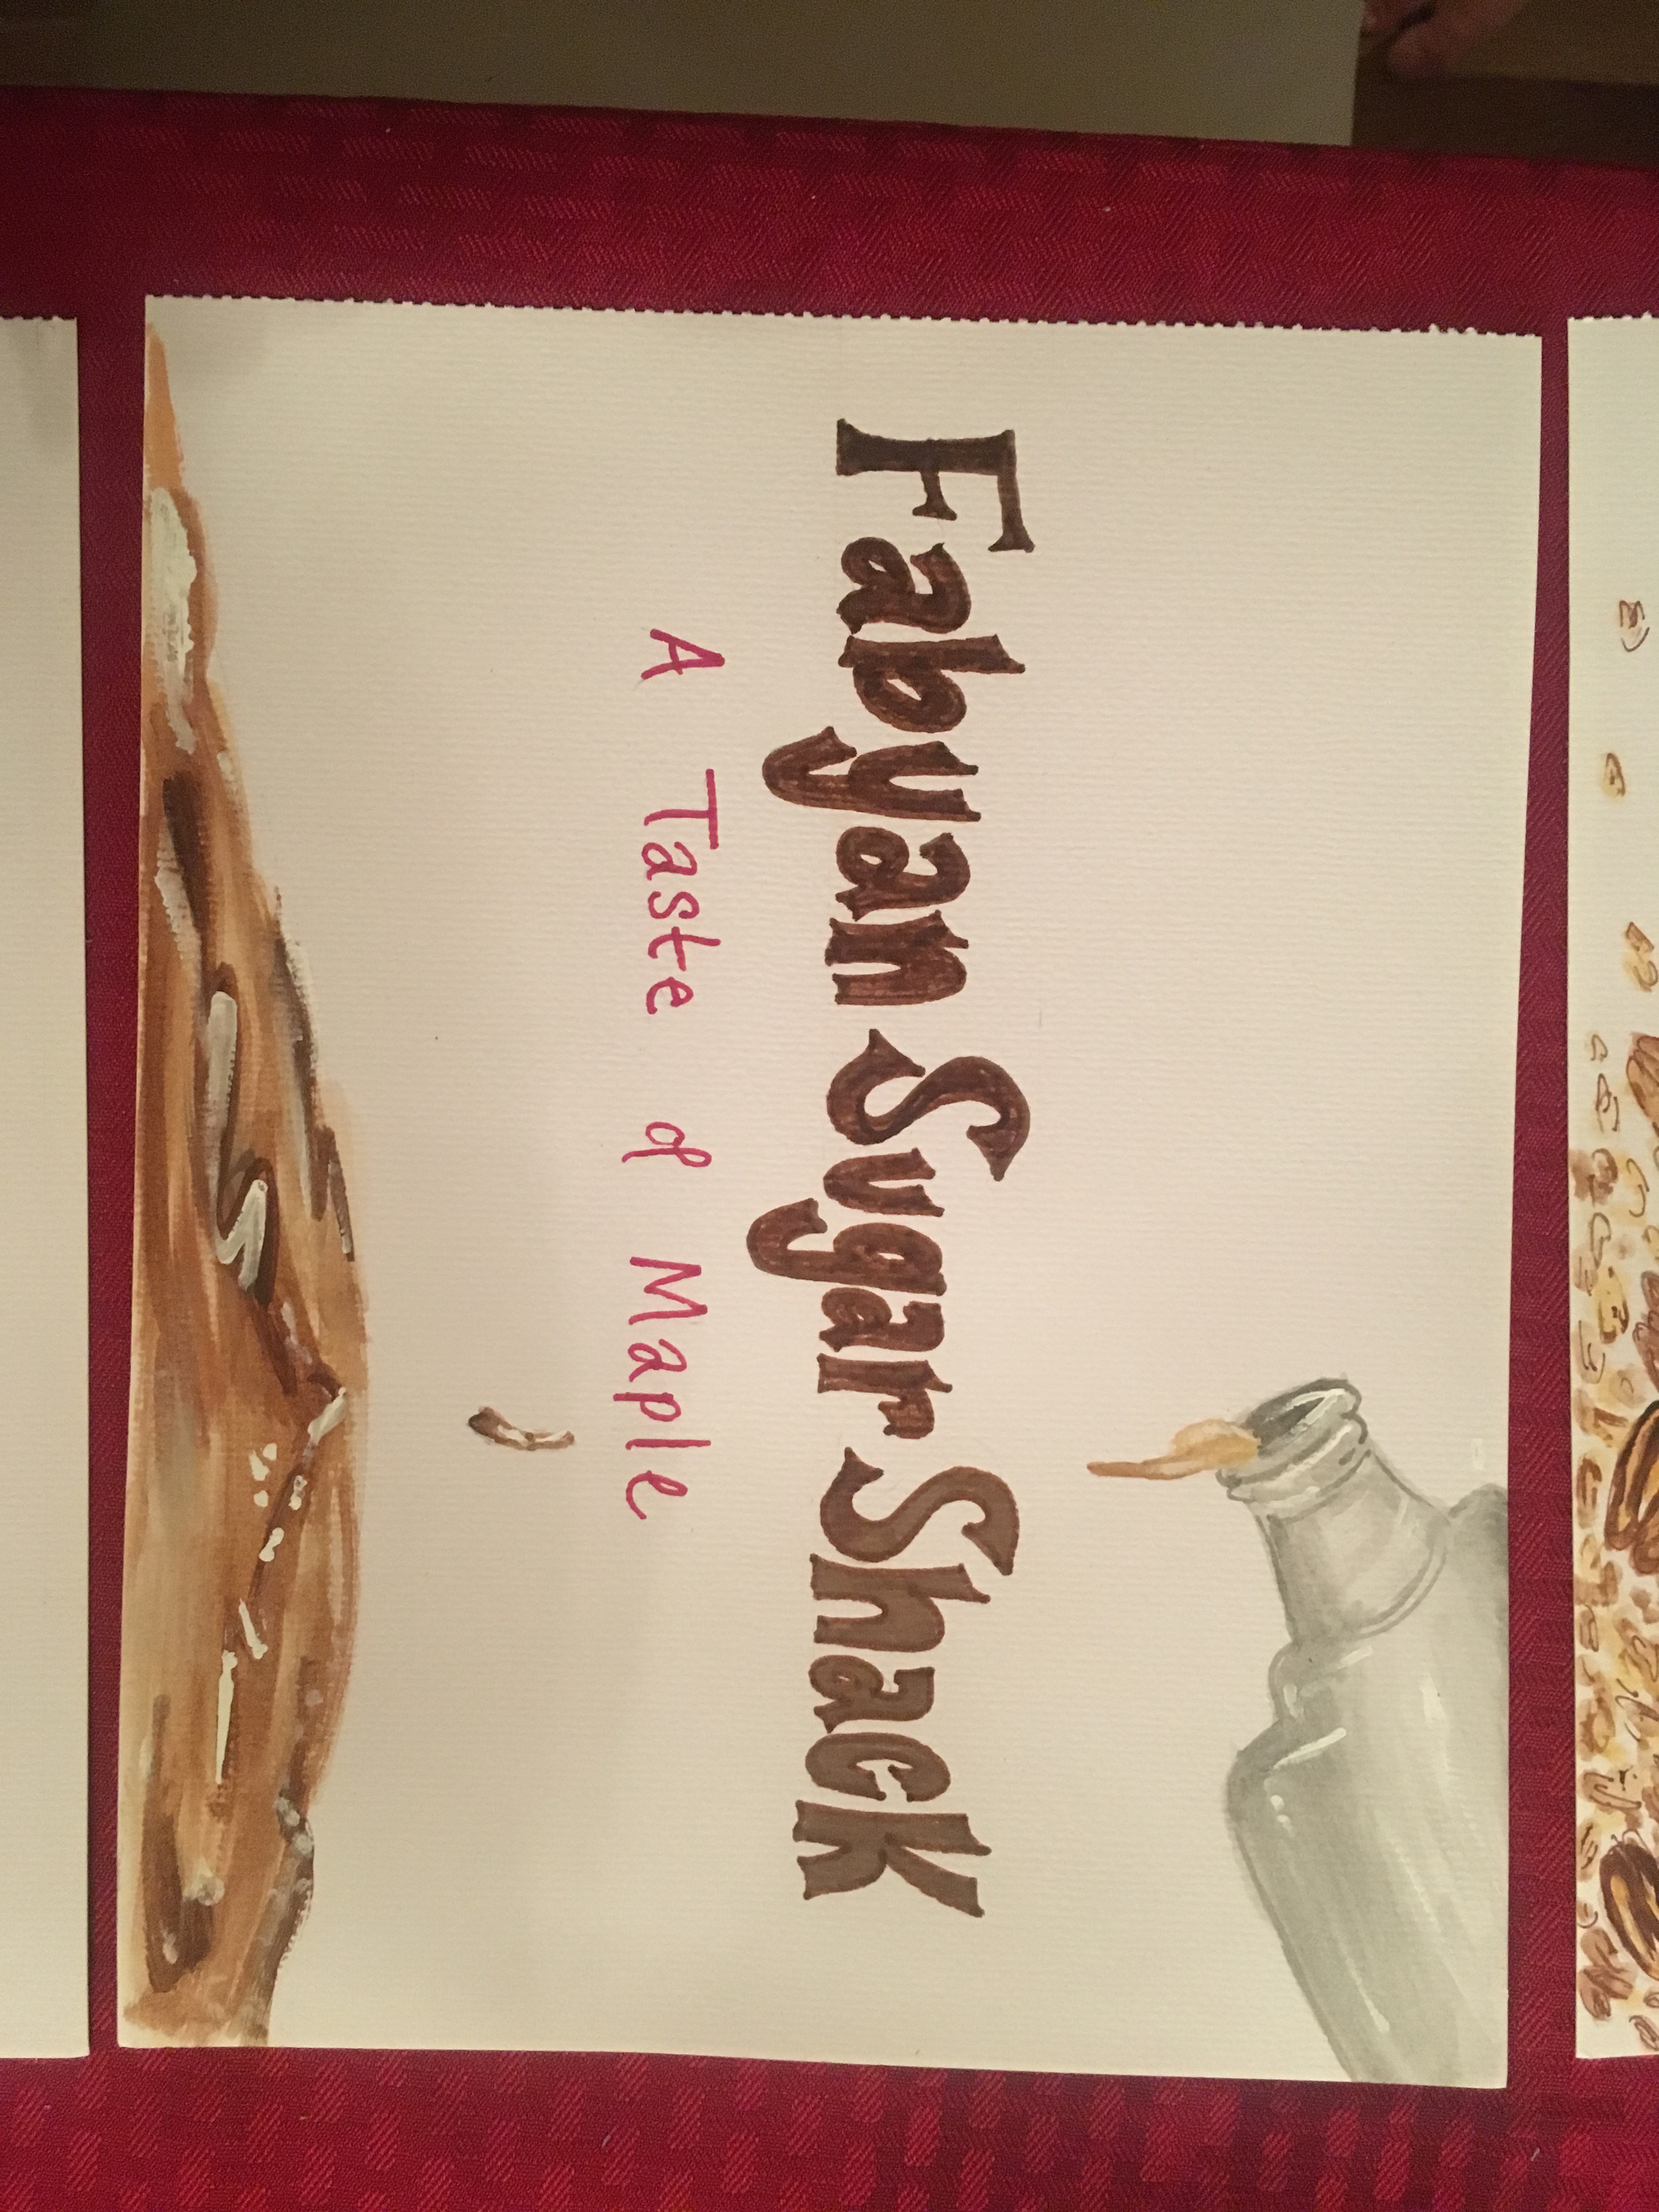 Fabyan Sugar Shack
A Taste of Maple